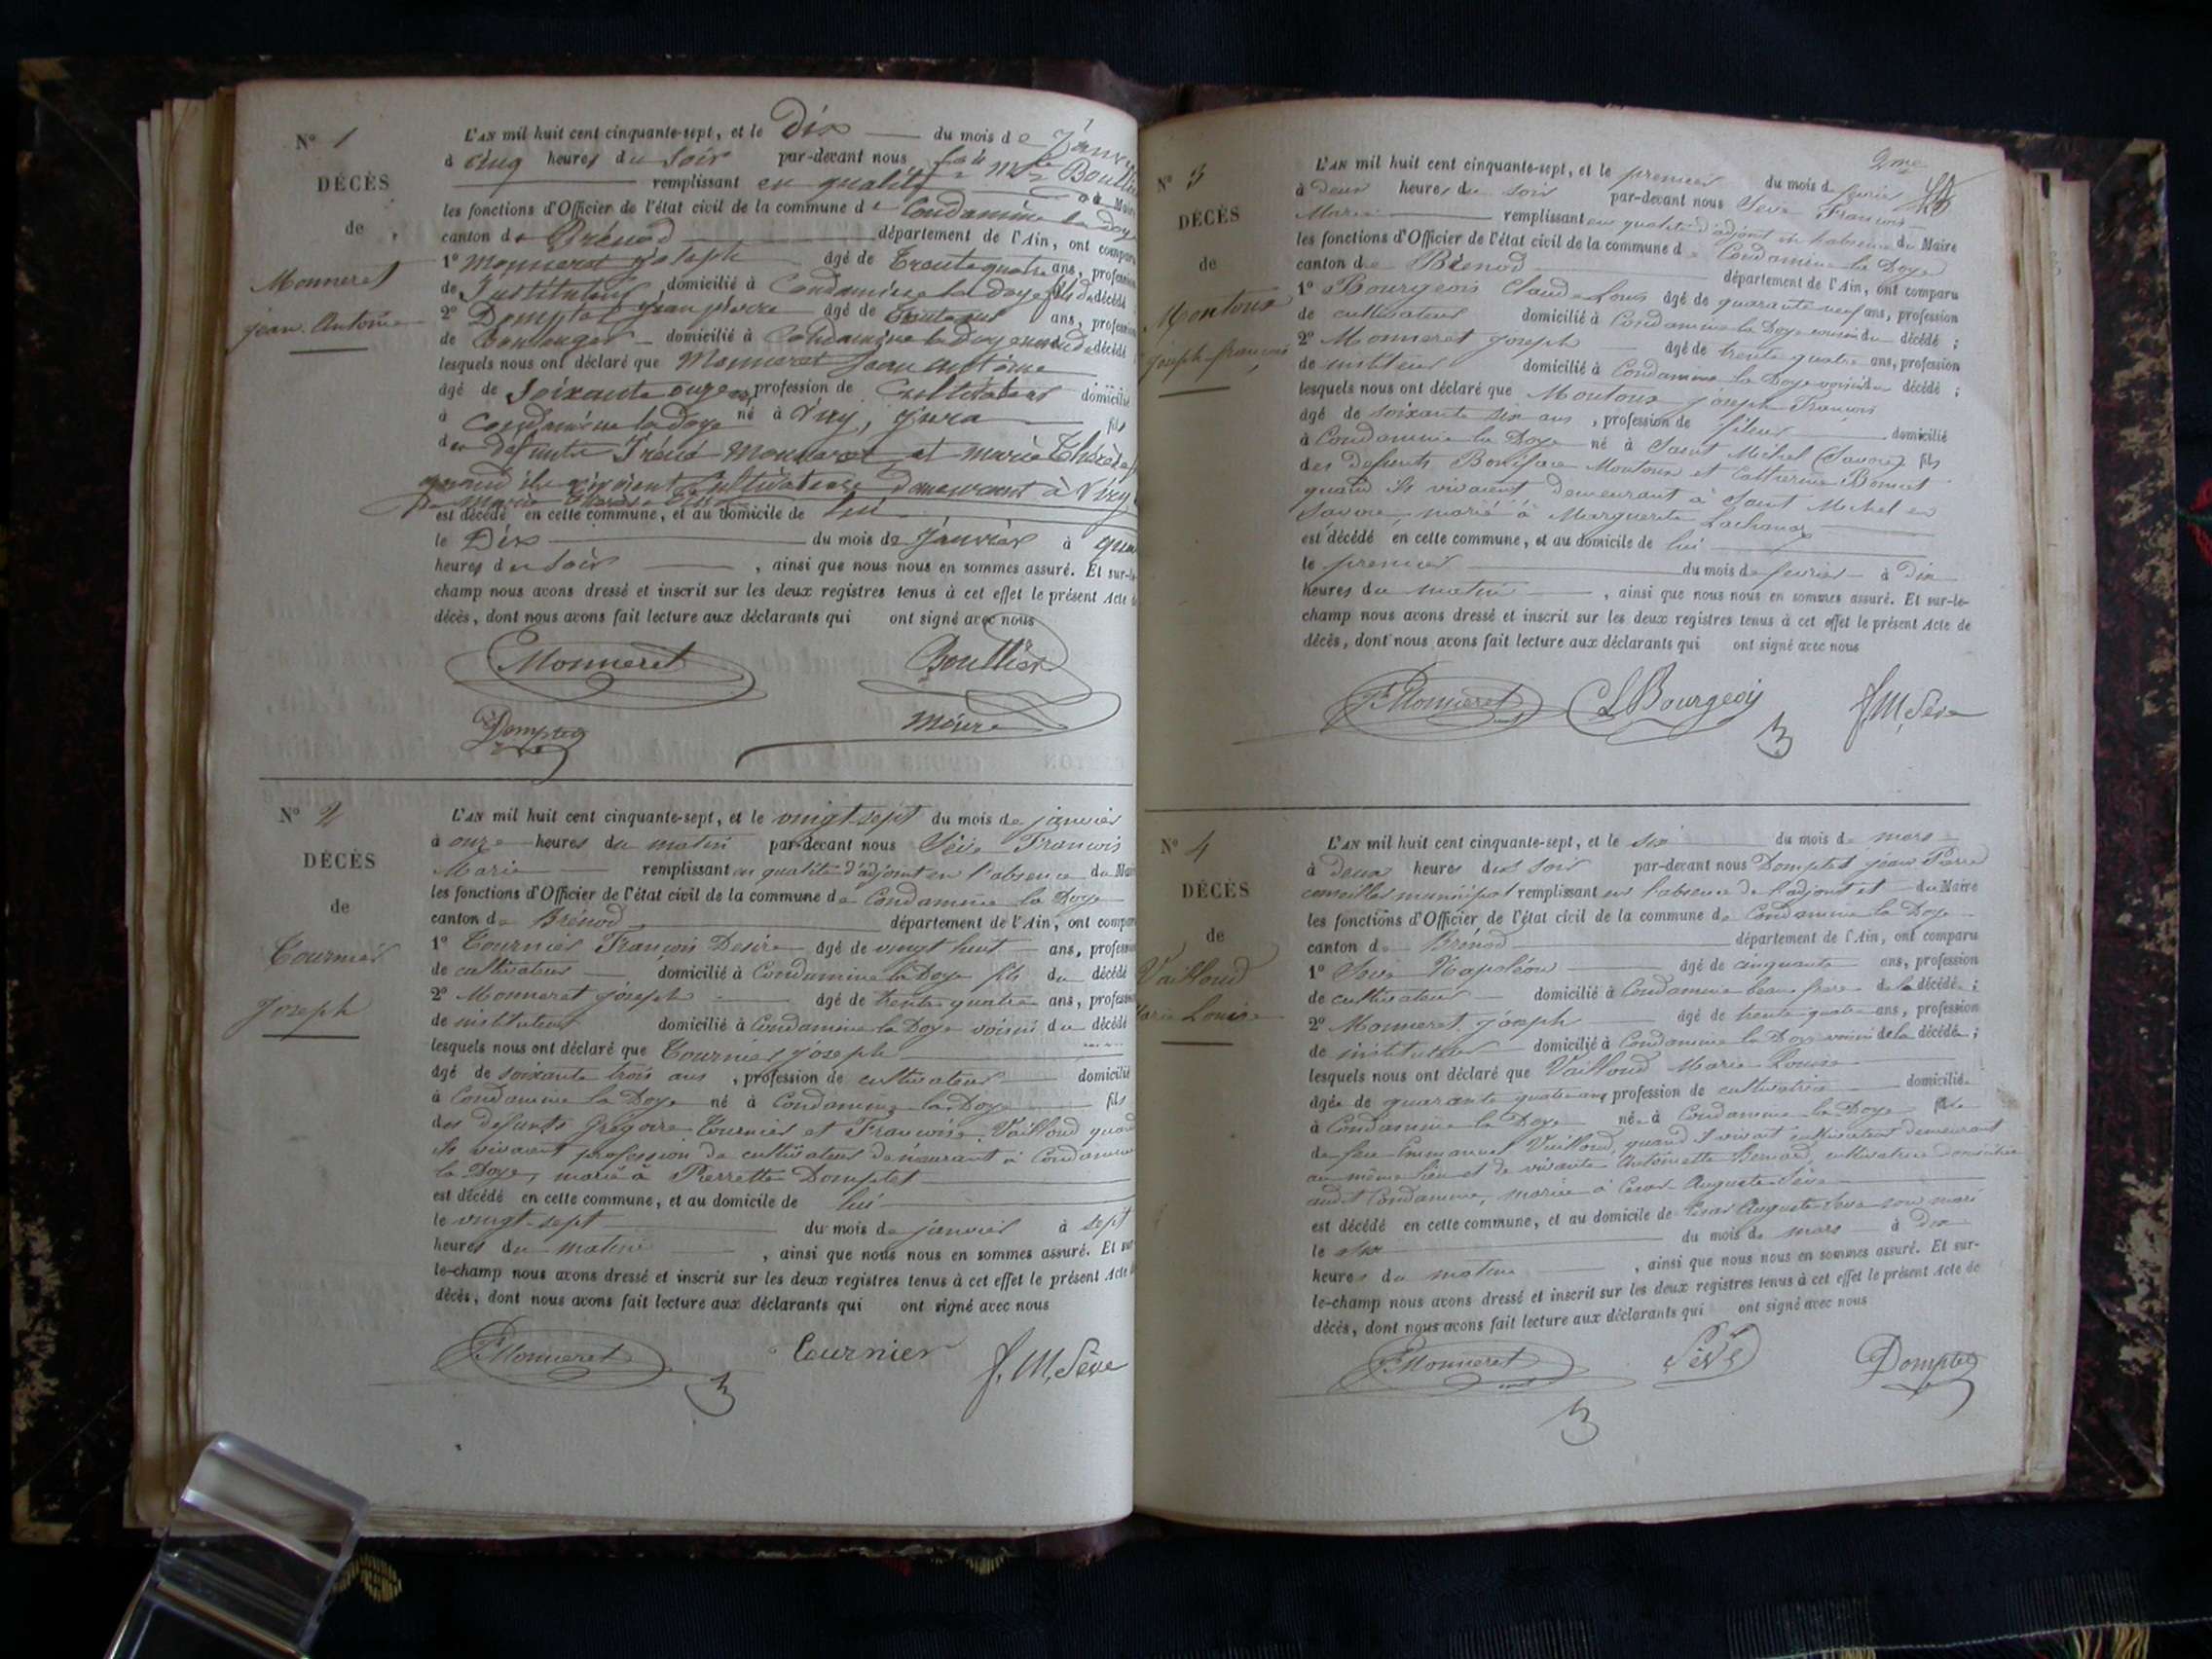 N° 1
DÉCÈS
de
Monneret
jean. Antoine
L'AN mil huit cent cinquante-sept, et le Dix du mois de
à cinq heures du Soir par-devant nous
remplissant en qualité
les fonctions d'Officier de l'état civil de la commune de Condamine la doye
canton de Brénod département de l'Ain, ont
1° Monneret joseph âgé de Trente quatre ans,
de Instituteur, domicilié à Condamine la doye fils du décédé
2° Domptet jean pierre âgé de ans,
de Boulanger domicilié à Condamine la doye décédé
lesquels nous ont déclaré que Monneret Jean antoine
âgé de Soixante onze , profession de Cultivateur domicilié
à Condamine la doye né à Viry, jura fils
des défunts Monneret et marie Thérèse
quand ils vivoient Cultivateurs demeurant à Viry
est décédé en cette commune, et au domicile de lui
le Dix du mois de Janvier à
heures du Soir , ainsi que nous nous en sommes assuré. Et
champ nous avons dressé et inscrit sur les deux registres tenus à cet effet le présent Acte
décès, dont nous avons fait lecture aux déclarants qui ont signé avec nous
Monneret Boullier
Domptet Maire
N° 2
DÉCÈS
de
Tournier
Joseph
L'AN mil huit cent cinquante-sept, et le vingt-sept du mois de janvier
à onze heures du matin par-devant nous Sève François
Marie remplissant en qualité d'adjoint en l'absence du
les fonctions d'Officier de l'état civil de la commune de Condamine la Doye
canton de Brénod département de l'Ain, ont
1° Tournier François Desire âgé de vingt huit ans,
de cultivateur domicilié à Condamine la Doye fils du décédé
2° Monneret joseph âgé de trente quatre ans,
de instituteur domicilié à Condamine la Doye voisin du décédé
lesquels nous ont déclaré que Tournier joseph
âgé de soixante trois ans , profession de cultivateur domicilié
à Condamine la Doye né à Condamine la Doye fils
des defunts Grégoire Tournier et Françoise Vailloud
ils vivaient profession de cultivateur demeurant à
la Doye, marié à Pierrette Domptet
est décédé en cette commune, et au domicile de lui
le vingt-sept du mois de janvier à sept
heures du matin , ainsi que nous nous en sommes assuré. Et
le-champ nous avons dressé et inscrit sur les deux registres tenus à cet effet le présent Acte
décès, dont nous avons fait lecture aux déclarants qui ont signé avec nous
Monneret Tournier f. M. Sève
2me
N° 3
DÉCÈS
de
Montoux
Joseph-françois
L'AN mil huit cent cinquante-sept, et le premier du mois de
à deux heures du soir par-devant nous Sève François
Marie remplissant en qualité d'adjoint en l'absence du Maire
les fonctions d'Officier de l'état civil de la commune de Condamine la Doye
canton de Brénod département de l'Ain, ont comparu
1° Bourgeois Claude Louis âgé de quarante neuf ans, profession
de cultivateur domicilié à Condamine la Doye du décédé ;
2° Monneret joseph âgé de trente quatre ans, profession
de domicilié à Condamine la Doye voisin du décédé ;
lesquels nous ont déclaré que Montoux joseph François
âgé de soixante ans , profession de domicilié
à Condamine la Doye né à Saint Michel (Savoie) fils
des defunts Boniface Montoux et Catherine Bonnet
quand ils vivaient demeurant à Saint Michel en
Savoie, marié à Marguerite
est décédé en cette commune, et au domicile de lui
le premier du mois de fevrier à dix
heures du matin , ainsi que nous nous en sommes assuré. Et sur-le-
champ nous avons dressé et inscrit sur les deux registres tenus à cet effet le présent Acte de
décès, dont nous avons fait lecture aux déclarants qui ont signé avec nous
Monneret CL Bourgeois f. M. Sève
N° 4
DÉCÈS
de
Vailloud
Marie Louise
L'AN mil huit cent cinquante-sept, et le six du mois de mars
à deux heures du soir par-devant nous Domptet jean Pierre
conseiller municipal remplissant en l'absence de l'adjoint et du Maire
les fonctions d'Officier de l'état civil de la commune de Condamine la Doye
canton de Brénod département de l'Ain, ont comparu
1° Sève Napoléon âgé de cinquante ans, profession
de cultivateur domicilié à Condamine beau frère de la décédée ;
2° Monneret joseph âgé de trente quatre ans, profession
de instituteur domicilié à Condamine la Doye voisin de la décédée ;
lesquels nous ont déclaré que Vailloud Marie Louise
âgée de quarante quatre ans profession de cultivatrice domiciliée
à Condamine la Doye née à Condamine la Doye fille
de feu Emmanuel Vailloud, quand il vivait cultivateur demeurant
au même lieu et de vivante Antoinette Bernard, cultivatrice domiciliée
audit Condamine, mariée à Cesar Auguste Sève
est décédé en cette commune, et au domicile de Cesar Auguste Sève son mari
le six du mois de mars à dix
heures du matin , ainsi que nous nous en sommes assuré. Et sur-
le-champ nous avons dressé et inscrit sur les deux registres tenus à cet effet le présent Acte de
décès, dont nous avons fait lecture aux déclarants qui ont signé avec nous
Monneret Sève Domptet